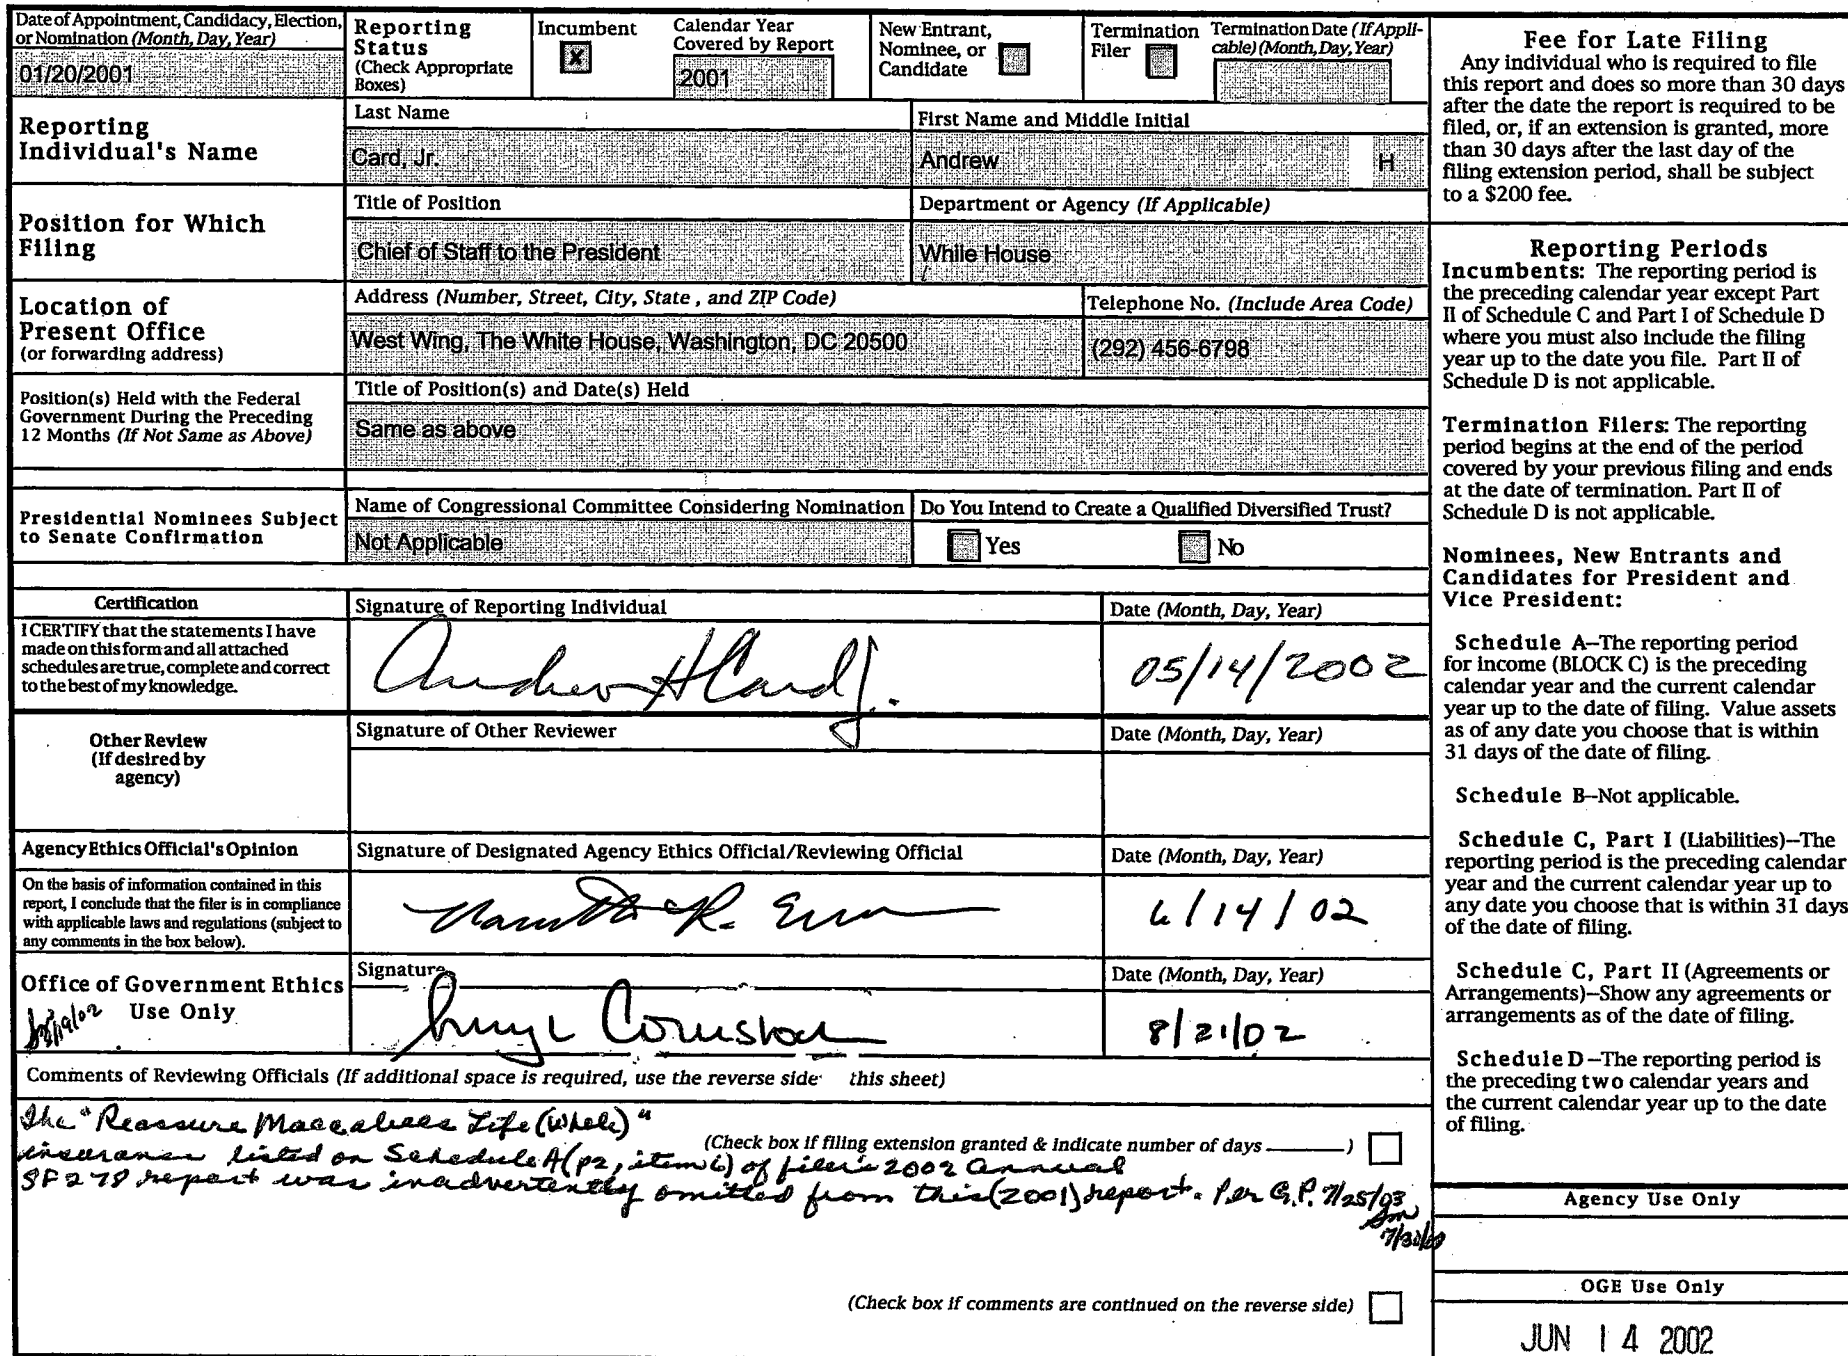 Date of Appointment, Candidacy, Election,
or Nomination (Month, Day, Year)
01/20/2001
Reporting
Status
(Check Appropriate
Boxes)
Incumbent
x
Calendar Year
Covered by Report
2001
New Entrant,
Nominee, or
Candidate
Termination
Filer
Termination Date (If Appli-
cable) (Month, Day, Year)
Reporting
Individual's Name
Last Name
Card, Jr.
First Name and Middle Initial
Andrew H
Position for Which
Filing
Title of Position
Chief of Staff to the President
Department or Agency (If Applicable)
While House
Location of
Present Office
(or forwarding address)
Address (Number, Street, City, State , and ZIP Code)
West Wing, The White House, Washington, DC 20500
Telephone No. (Include Area Code)
(292) 456-6798
Position(s) Held with the Federal
Government During the Preceding
12 Months (If Not Same as Above)
Title of Position(s) and Date(s) Held
Same as above
Presidential Nominees Subject
to Senate Confirmation
Name of Congressional Committee Considering Nomination
Not Applicable
Do You Intend to Create a Qualified Diversified Trust?
Yes
No
Certification
I CERTIFY that the statements I have
made on this form and all attached
schedules are true, complete and correct
to the best of my knowledge.
Signature of Reporting Individual
Andrew H Card Jr.
Date (Month, Day, Year)
05/14/2002
Other Review
(If desired by
agency)
Signature of Other Reviewer
Date (Month, Day, Year)
Agency Ethics Official's Opinion
On the basis of information contained in this
report, I conclude that the filer is in compliance
with applicable laws and regulations (subject to
any comments in the box below).
Signature of Designated Agency Ethics Official/Reviewing Official
Date (Month, Day, Year)
6/14/02
Office of Government Ethics
Use Only
Signature
Comstock
Date (Month, Day, Year)
8/21/02
Comments of Reviewing Officials (If additional space is required, use the reverse side this sheet)
The "Reassure Maccabees Life (Whole)"
(Check box if filing extension granted & indicate number of days )
insurance listed on Schedule A (p2, item 6) of filer's 2002 annual
SF278 report was inadvertently omitted from this (2001) report. Per G.P. 7/25/03
(Check box if comments are continued on the reverse side)
Fee for Late Filing
Any individual who is required to file
this report and does so more than 30 days
after the date the report is required to be
filed, or, if an extension is granted, more
than 30 days after the last day of the
filing extension period, shall be subject
to a $200 fee.
Reporting Periods
Incumbents: The reporting period is
the preceding calendar year except Part
II of Schedule C and Part I of Schedule D
where you must also include the filing
year up to the date you file. Part II of
Schedule D is not applicable.
Termination Filers: The reporting
period begins at the end of the period
covered by your previous filing and ends
at the date of termination. Part II of
Schedule D is not applicable.
Nominees, New Entrants and
Candidates for President and
Vice President:
Schedule A--The reporting period
for income (BLOCK C) is the preceding
calendar year and the current calendar
year up to the date of filing. Value assets
as of any date you choose that is within
31 days of the date of filing.
Schedule B--Not applicable.
Schedule C, Part I (Liabilities)--The
reporting period is the preceding calendar
year and the current calendar year up to
any date you choose that is within 31 days
of the date of filing.
Schedule C, Part II (Agreements or
Arrangements)--Show any agreements or
arrangements as of the date of filing.
Schedule D --The reporting period is
the preceding two calendar years and
the current calendar year up to the date
of filing.
Agency Use Only
OGE Use Only
JUN 14 2002